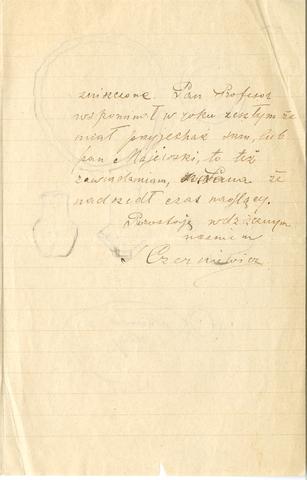 zniszczone. Pan Profesor
wspomniał w roku zeszłym że
miał przyjechać sam, lub
pan Majewski, to też
zawiadamiam, Pana że
nadszedł czas naglący.
Pozostaję wdzięcznym
uczniem
Czerniewicz